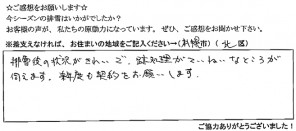 ☆ご感想をお願いします☆
今シーズンの排雪はいかがでしたか?
お客様の声が、私たちの原動力になっています。ぜひ、ご感想をお聞かせ下さい。
※差支えなければ、お住まいの地域をご記入ください→(札幌市)(北区)
排雪後の状況がきれいで、雪処理がていねいなところが
伺えます。来年度も契約をお願いします。
ご協力ありがとうございました!